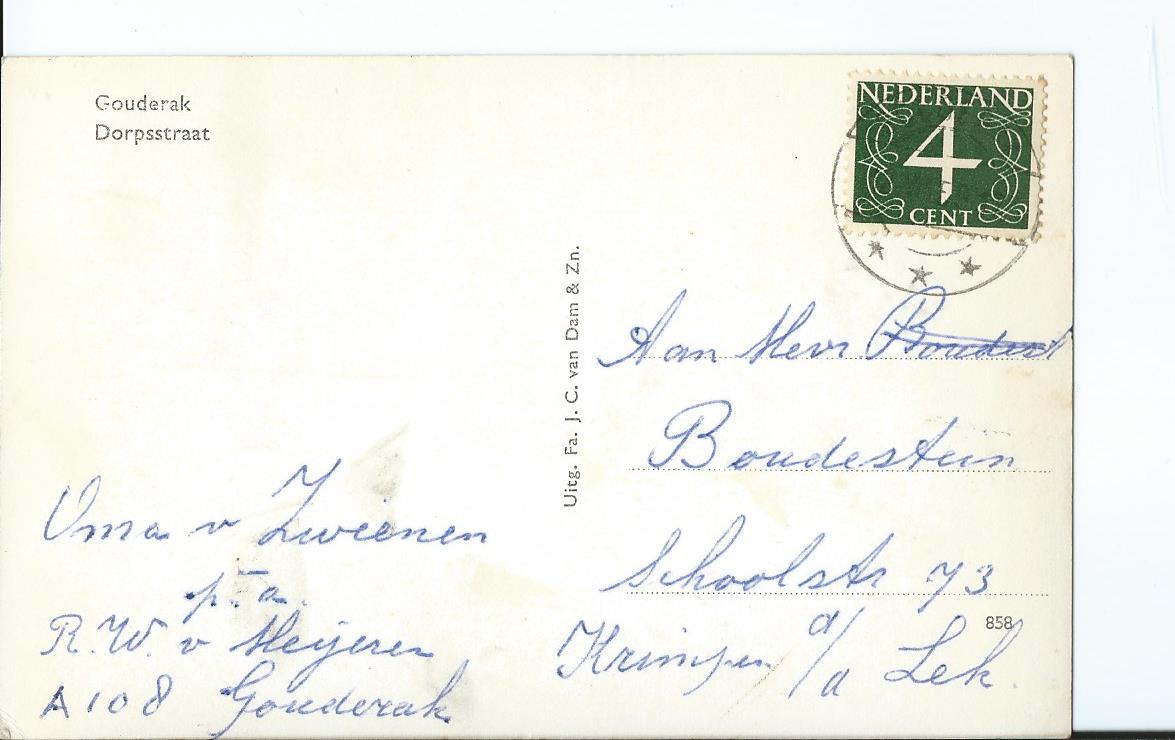 Gouderak
Dorpsstraat
NEDERLAND
4
CENT
Uitg. Fa. J. C. van Dam & Zn.
Aan Mevr.
Boudestein
Schoolstr 73
858
Krimpen a/d Lek.
Oma v Zwienen
p.a.
R.W. v Meijeren
A 108 Gouderak